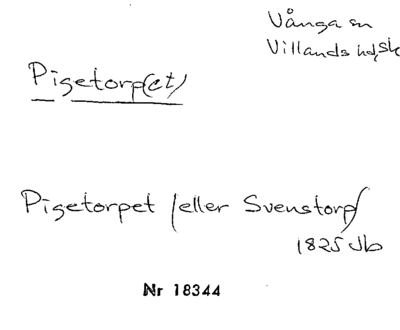 Vånga sn
Villands hd, Sk
Pigetorp(et)
Pigetorpet /eller Svenstorp/
1825 Jb
Nr 18344